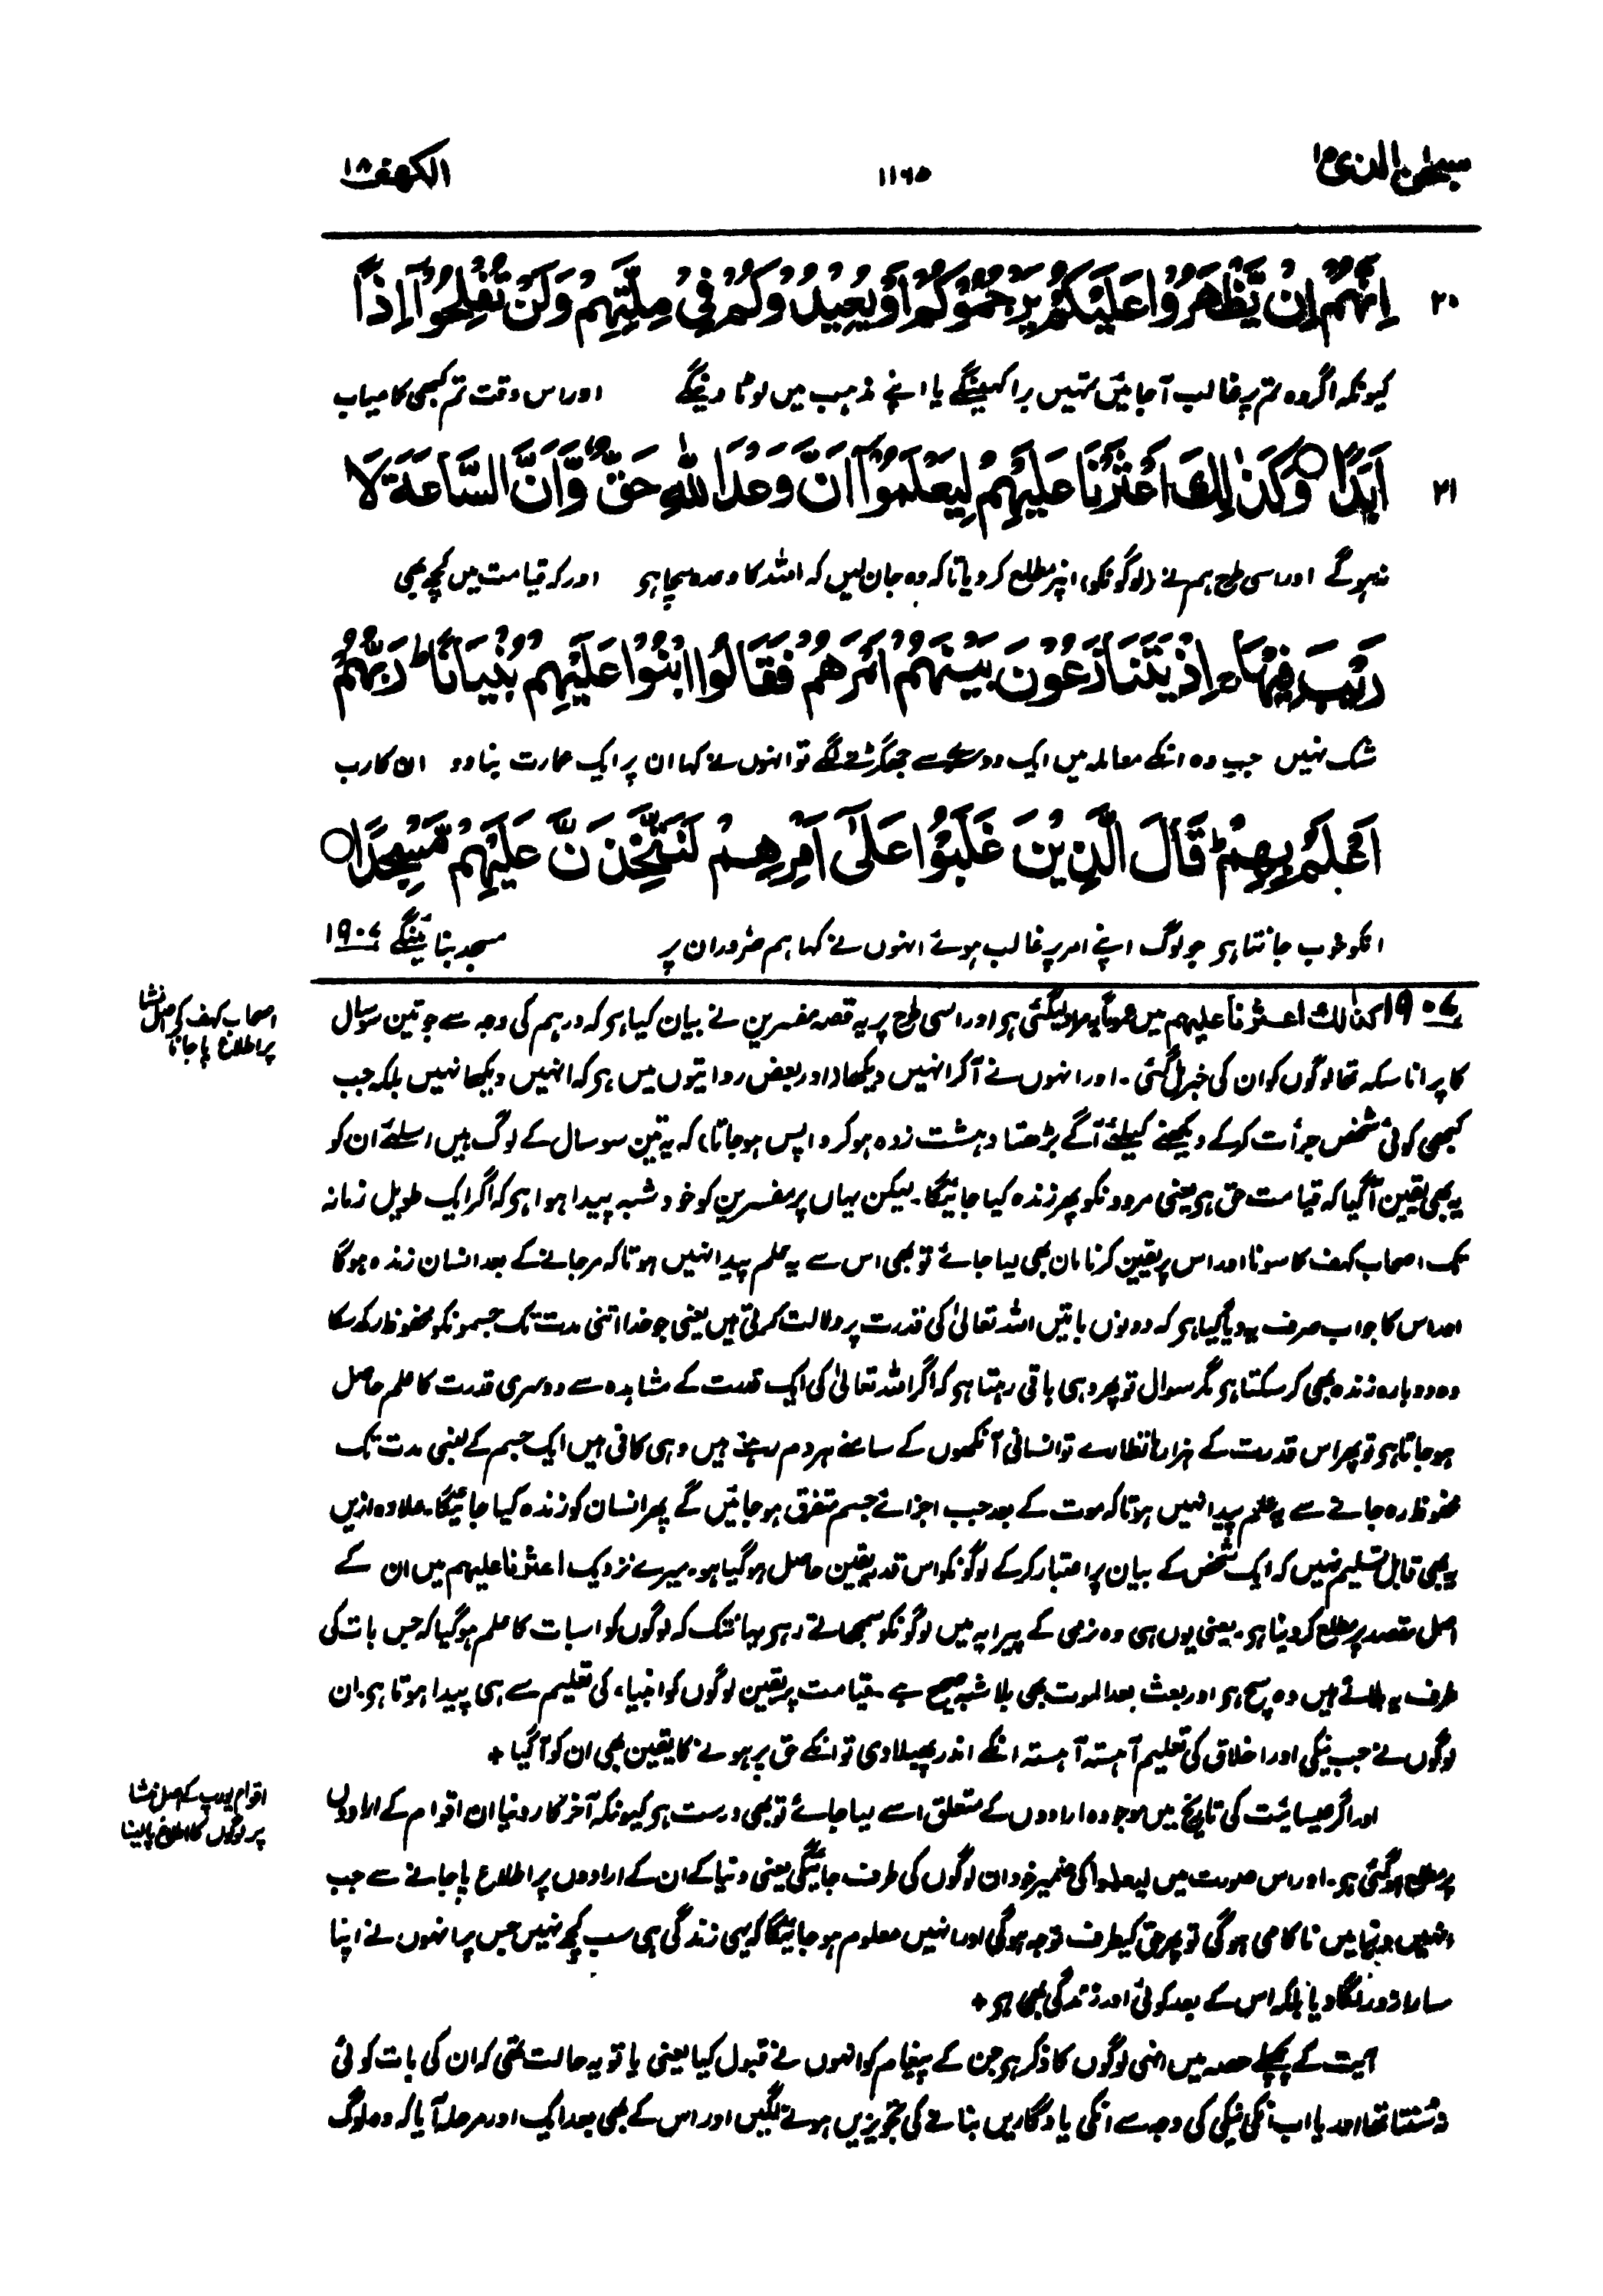 سبحٰن الذی ۱۵
۱۱۶۵
الکھف ۱۸
۲۰ اِنَّهُمْ اِنْ يَّظْهَرُوْا عَلَيْكُمْ يَرْجُمُوْكُمْ اَوْ يُعِيْدُوْكُمْ فِيْ مِلَّتِهِمْ وَلَنْ تُفْلِحُوْٓا اِذًا
کیونکہ اگر وہ تم پر غالب آ جائیں تمہیں برا کہینگے یا اپنے مذہب میں لوٹا دینگے اور اس وقت تم کبھی کامیاب
۲۱ اَبَدًا ○ وَكَذٰلِكَ اَعْثَرْنَا عَلَيْهِمْ لِيَعْلَمُوْٓا اَنَّ وَعْدَ اللّٰهِ حَقٌّ وَّاَنَّ السَّاعَةَ لَا
نہ ہو گے اور اسی طرح ہم نے (لوگونکو) انپر مطلع کر دیا تاکہ وہ جان لیں کہ اللہ کا وعدہ سچا ہو اور کہ قیامت میں کچھ بھی
رَيْبَ فِيْهَا ۚ اِذْ يَتَنَازَعُوْنَ بَيْنَهُمْ اَمْرَهُمْ فَقَالُوا ابْنُوْا عَلَيْهِمْ بُنْيَانًا ؕ رَبُّهُمْ
شک نہیں جب وہ انکے معاملہ میں ایک دوسرے سے جھگڑنے لگے تو انہوں نے کہا ان پر ایک عمارت بنا دو ان کا رب
اَعْلَمُ بِهِمْ ؕ قَالَ الَّذِيْنَ غَلَبُوْا عَلٰٓى اَمْرِهِمْ لَنَتَّخِذَنَّ عَلَيْهِمْ مَّسْجِدًا ○
انکو خوب جانتا ہو جو لوگ اپنے امر پر غالب ہوئے انہوں نے کہا ہم ضرور ان پر مسجد بنائینگے ۱۹۰۷
اصحاب کہف کے اصل منشا
پر اطلاع پا جانا
۱۹۰۷ کذٰلک اعثرنا علیہم میں عموماً یہ مراد لیگئی ہو اور اسی طرح پر یہ قصہ مفسرین نے بیان کیا ہو کہ درہم کی وجہ سے جو تین سو سال
کا پرانا سکہ تھا لوگوں کو ان کی خبر مل گئی۔ اور انہوں نے آکر انہیں دیکھا (اور بعض روایتوں میں ہو کہ انہیں دیکھا نہیں بلکہ جب
کبھی کوئی شخص جرأت کرکے دیکھنے کیلئے آگے بڑھتا دہشت زدہ ہو کر واپس ہو جاتا) کہ یہ تین سو سال کے لوگ ہیں اسلئے ان کو
یہ بھی یقین آگیا کہ قیامت حق ہو یعنی مردونکو پھر زندہ کیا جائیگا۔ لیکن یہاں پر مفسرین کو خود شبہ پیدا ہوا ہو کہ اگر ایک طویل زمانہ
تک اصحاب کہف کا سونا اور اس پر یقین کرنا مان بھی لیا جائے تو بھی اس سے یہ علم پیدا نہیں ہوتا کہ مرجانے کے بعد انسان زندہ ہوگا
اور اس کا جواب صرف یہ دیا گیا ہو کہ دونوں باتیں اللہ تعالیٰ کی قدرت پر دلالت کرتی ہیں یعنی جو خدا اتنی مدت تک جسمونکو محفوظ رکھ سکا
وہ دوبارہ زندہ بھی کر سکتا ہو مگر سوال تو پھر وہی باقی رہتا ہو کہ اگر اللہ تعالیٰ کی ایک قدرت کے مشاہدہ سے دوسری قدرت کا علم حاصل
ہو جاتا ہو تو پھر اس قدرت کے ہزارہا نظارے تو انسانی آنکھوں کے سامنے ہر دم رہتے ہیں وہی کافی ہیں ایک جسم کے لمبی مدت تک
محفوظ رہ جانے سے یہ علم پیدا نہیں ہوتا کہ موت کے بعد جب اجزائے جسم متفرق ہو جائیں گے پھر انسان کو زندہ کیا جائیگا۔ علاوہ ازیں
یہ بھی قابل تسلیم نہیں کہ ایک شخص کے بیان پر اعتبار کرکے لوگونکو اس قدر یقین حاصل ہو گیا ہو۔ میرے نزدیک اعثرنا علیہم میں ان کے
اصل مقصد پر مطلع کر دینا ہو۔ یعنی یوں ہی وہ نرمی کے پیرایہ میں لوگونکو سمجھاتے رہے یہانتک کہ لوگوں کو اس بات کا علم ہو گیا کہ جس بات کی
طرف یہ بلاتے ہیں وہ سچ ہو اور بعث بعد الموت بھی بلا شبہ صحیح ہے۔ قیامت پر یقین لوگوں کو انبیاء کی تعلیم سے ہی پیدا ہوتا ہو۔ ان
لوگوں نے جب نیکی اور اخلاق کی تعلیم آہستہ آہستہ انکے اندر پھیلا دی تو انکے حق پر ہونے کا یقین بھی ان کو آگیا +
اقوام یورپ کے اصل منشا
پر لوگوں کا اطلاع پا لینا
اور اگر عیسائیت کی تاریخ میں موجودہ ارادوں کے متعلق اسے لیا جائے تو بھی درست ہو کیونکہ آخر کار دنیا ان اقوام کے ارادوں
پر مطلع ہو گئی ہو۔ اور اس صورت میں لیعلموا کی ضمیر خود ان لوگوں کی طرف جائیگی یعنی دنیا کے ان کے ارادوں پر اطلاع پا جانے سے جب
انہیں دنیا میں ناکامی ہو گی تو پھر حق کیطرف توجہ ہوگی اور انہیں معلوم ہو جائیگا کہ یہی زندگی ہی سب کچھ نہیں جس پر انہوں نے اپنا
سارا زور لگا دیا بلکہ اس کے بعد کوئی اور زندگی بھی ہو +
آیت کے پچھلے حصہ میں انہی لوگوں کا ذکر ہو جن کے پیغام کو انہوں نے قبول کیا یعنی یا تو یہ حالت تھی کہ ان کی بات کوئی
نہ سنتا تھا اور یا اب انکی نیکی کی وجہ سے انکی یادگاریں بنانے کی تجویزیں ہونے لگیں اور اس کے بھی بعد ایک اور مرحلہ آیا کہ وہ لوگ